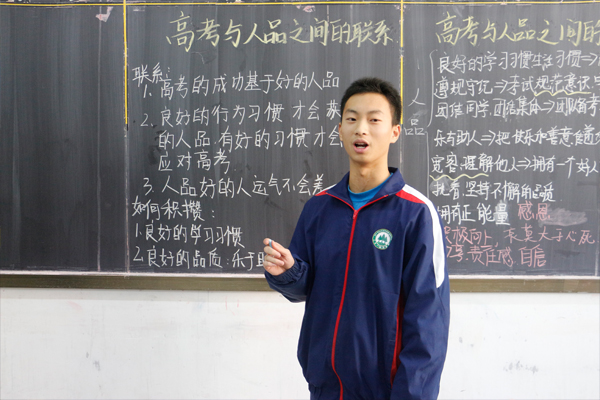 高考与人品之间的联系
联系：
1. 高考的成功基于好的人品
2. 良好的行为习惯才会
的人品.有好的习惯才会
应对高考.
3. 人品好的人运气不会差
如何积攒：
1.良好的学习习惯
2.良好的品质：乐于
高考与人品之间的
人品
良好的学习习惯生活习惯⇒
遵规守纪⇒考试规范意识
团结同学.团结集体⇒
乐于助人⇒把快乐和善意
宽容.理解他人⇒拥有一个好人
执着.坚持不懈的品质
拥有正能量 感恩
莫大于心死
责任感 自信